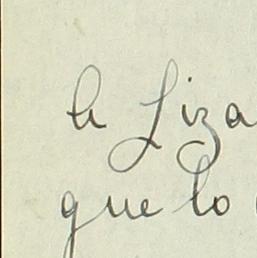 a Liza
que lo